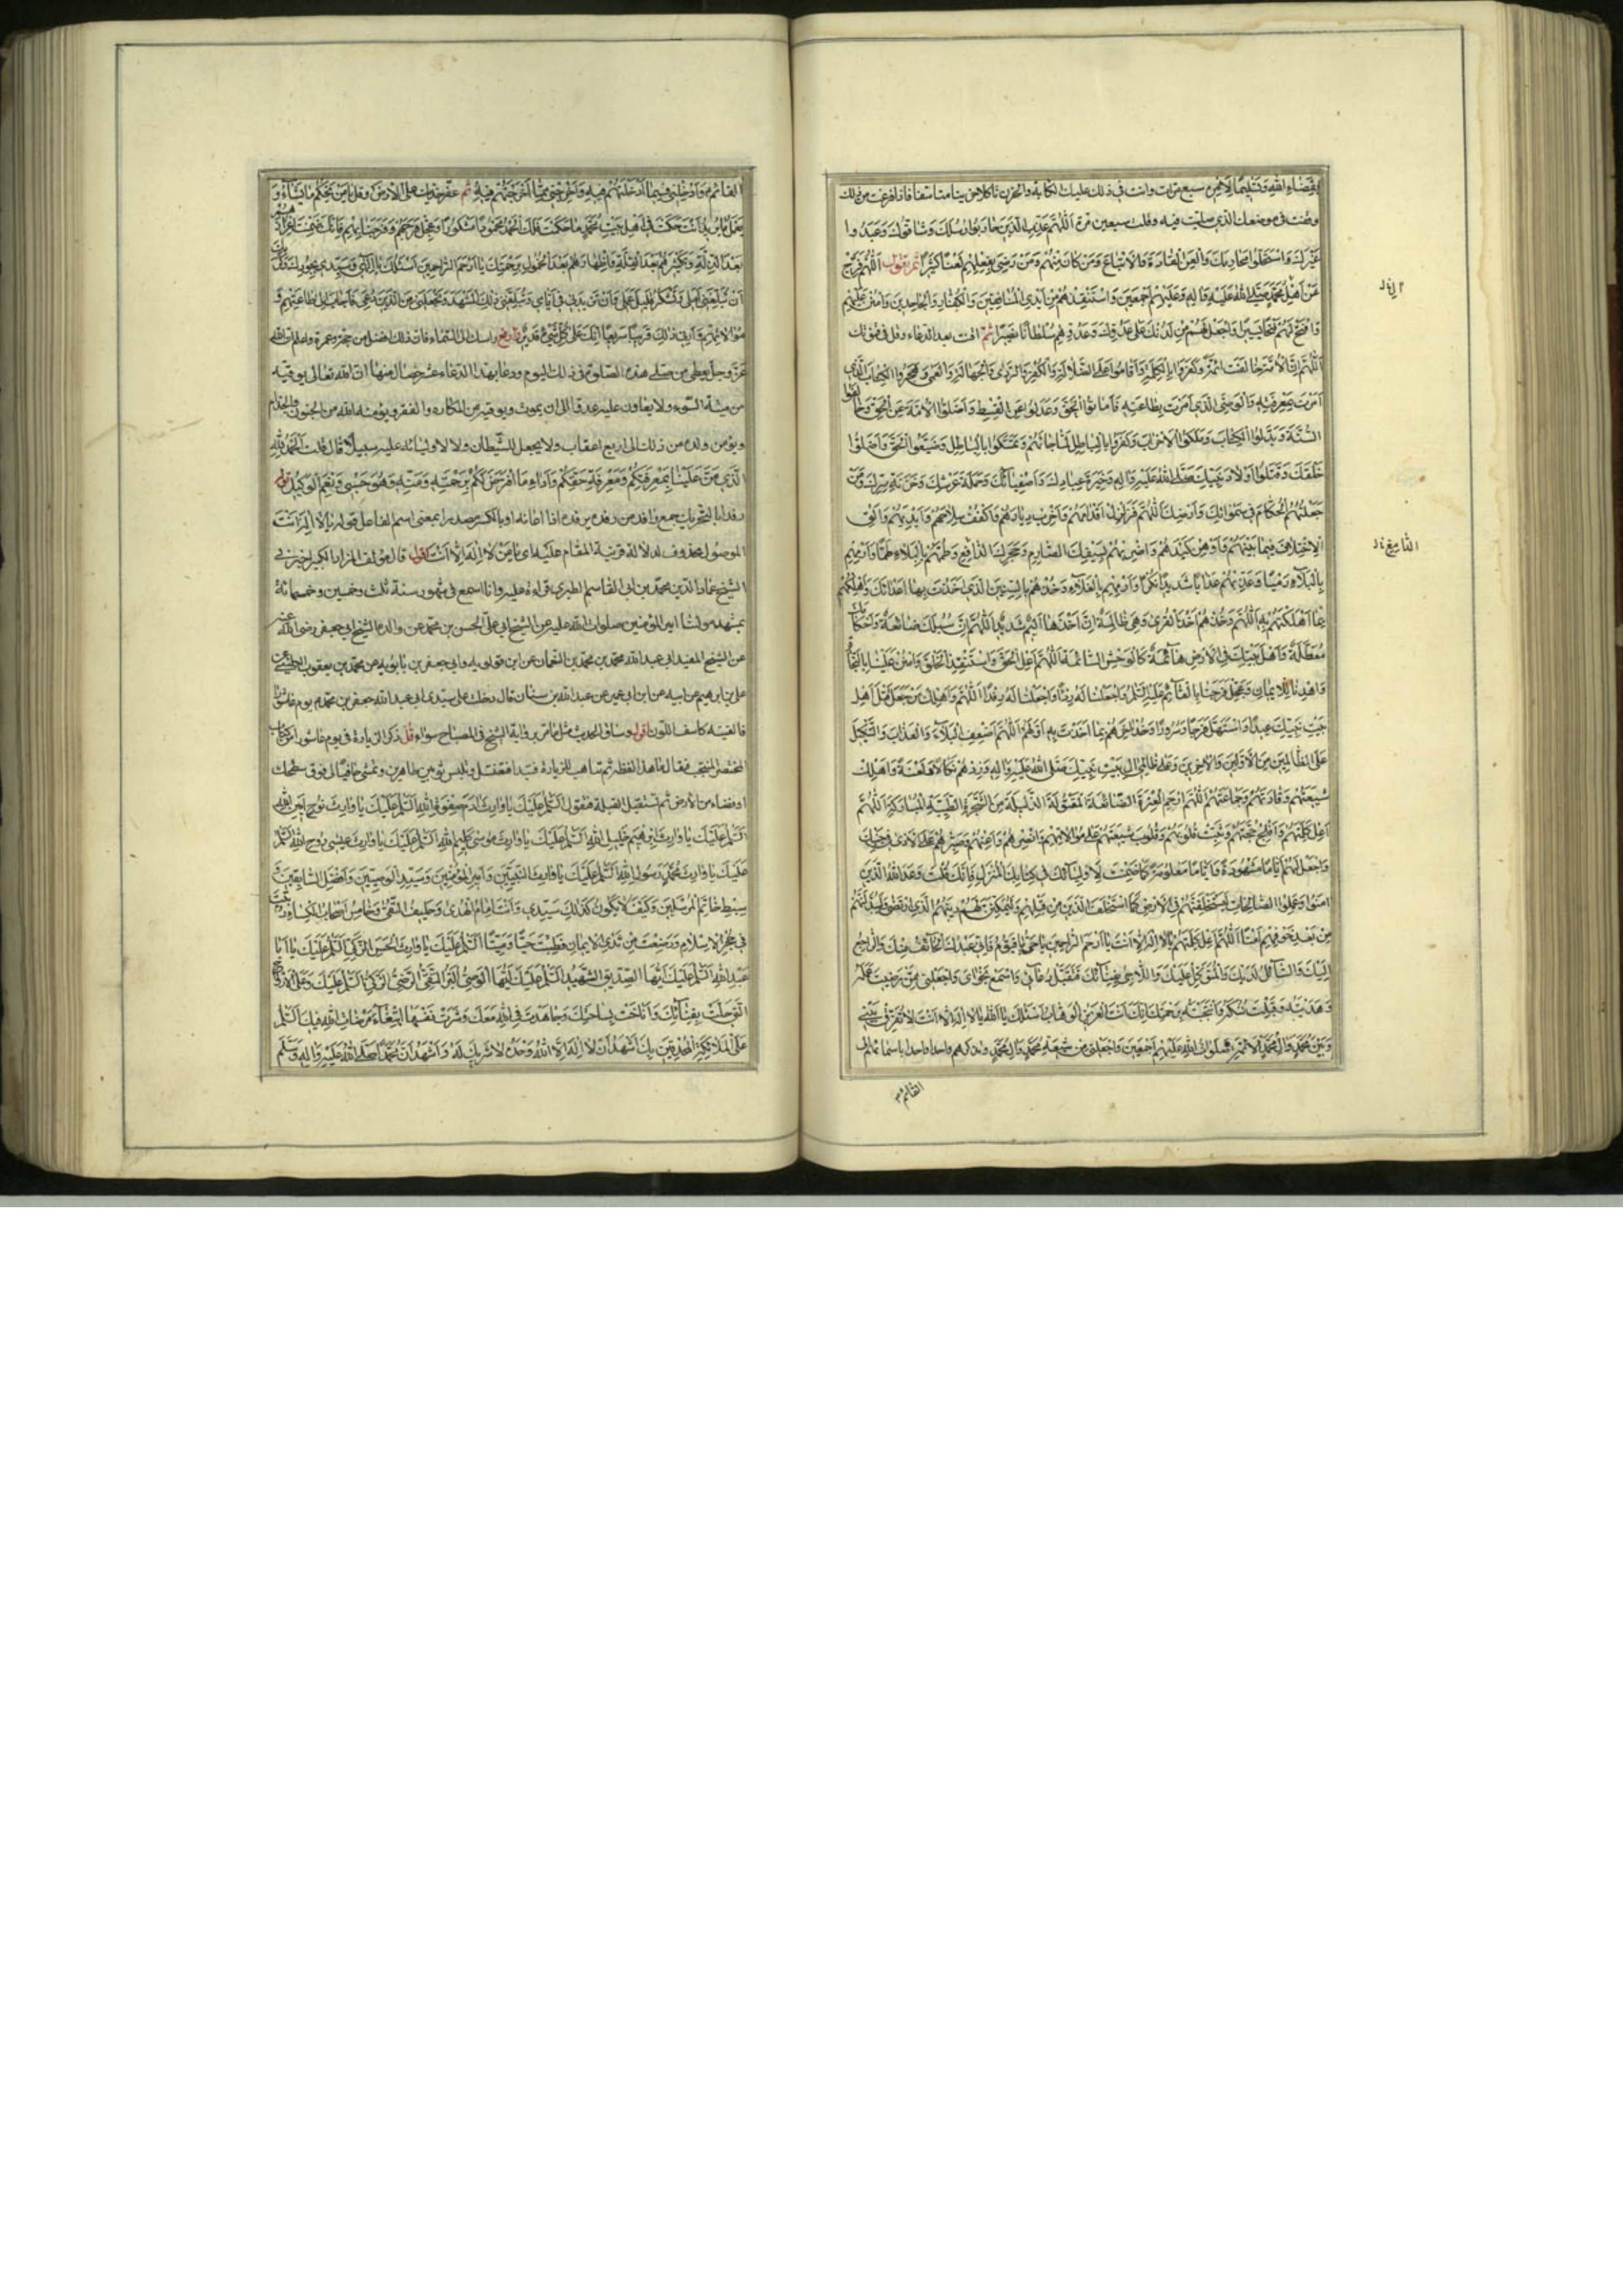 بقضاء الله وتسليما لامره سبع مرات وانت في ذلك عليك الكابة والحزن ثاكلا حزينا متاسفا فاذا فرغت من ذلك
وقفت في موضعك الذي صليت فيه وقلت سبعين مرة اللهم عذب الذين حاربوا رسلك وشاقوك وعبدوا
غيرك واستحلوا محارمك والعن القادة والاتباع ومن كان منهم ومن رضي بفعلهم لعنا كثيرا ثم تقول اللهم فرج
عن اهل محمد صلى الله عليه واله وعليهم اجمعين واستنقذهم من ايدي المنافقين والكفار والجاحدين وامنن عليهم
وافتح لهم فتحا يسيرا واجعل لهم من لدنك على عدوك وعدوهم سلطانا نصيرا ثم اقنت بعد الدعاء وقل في قنوتك
اللهم ان الامة خالفت الائمة وكفروا بالكلمة واقاموا على الضلالة والكفر والردى والجهالة والعمى وهجروا الكتاب الذي
امرت بمعرفته والوصي الذي امرت بطاعته فاماتوا الحق وعدلوا عن القسط واضلوا الامة عن الحق وخالفوا
السنة وبدلوا الكتاب وملكوا الاحزاب وكفروا بالحق لما جاءهم وتمسكوا بالباطل وضيعوا الحق واضلوا
خلقك وقتلوا اولاد نبيك صلى الله عليه واله وخيرة عبادك واصفيائك وحملة عرشك وخزنة سرك ومن
جعلتهم الحكام في سمواتك وارضك اللهم فزلزل اقدامهم واخرب ديارهم واكفف سلاحهم وايديهم والق
الاختلاف فيما بينهم واوهن كيدهم واضربهم بسيفك الصارم وحجرك الدامغ وطمهم بالبلاء طما وارمهم
بالبلاء رميا وعذبهم عذابا شديدا نكرا وارمهم بالغلاء وخذهم بالسنين الذي اخذت بها اعدائك واهلكهم
بما اهلكتهم به اللهم وخذهم اخذ القرى وهي ظالمة ان اخذها اليم شديد اللهم ان سبلك ضائعة واحكامك
معطلة واهل نبيك في الارض هائمة كالوحش السائمة اللهم اعل الحق واستنقذ الخلق وامنن علينا بالنجاة
واهدنا للايمان وعجل فرجنا بالقائم عليه السلم واجعله لنا ردءا واجعلنا له رفدا اللهم واهلك من جعل قتل اهل
بيت نبيك عيدا واستهل فرحا وسرورا وخذ اخرهم بما اخذت به اولهم اللهم اضعف البلاء والعذاب والتنكيل
على الظالمين من الاولين والاخرين وعلى ظالمي ال بيت نبيك صلى الله عليه واله وزدهم نكالا ولعنة واهلك
شيعتهم وقادتهم وجماعتهم اللهم ارحم العترة الضائعة المقتولة الذليلة من الشجرة الطيبة المباركة اللهم
اعل كلمتهم وافلج حجتهم وثبت قلوبهم وقلوب شيعتهم على موالاتهم وانصرهم واعنهم وصبرهم على الاذى في جنبك
واجعل لهم اياما مشهودة واياما معلومة كما ضمنت لاوليائك في كتابك المنزل فانك قلت وعد الله الذين
امنوا وعملوا الصالحات ليستخلفنهم في الارض كما استخلف الذين من قبلهم وليمكنن لهم دينهم الذي ارتضى لهم وليبدلنهم
من بعد خوفهم امنا اللهم اعل كلمتهم يا لا اله الا انت يا ارحم الراحمين يا حي يا قيوم فاني عبدك الخائف منك والراجع
اليك والسائل لديك والمتوكل عليك واللاجي بفنائك فتقبل دعائي واستمع نجواي واجعلني ممن رضيت عمله
وهديته وقبلت نسكه وانتجبته برحمتك انك انت العزيز الوهاب اسئلك يا الله يا لا اله الا انت لا تفرق بيني
وبين محمد وال محمد الائمة صلوات الله عليهم اجمعين واجعلني من شيعة محمد وال محمد وتذكرهم واحدا واحدا باسمائهم الى
القائم
القائم وادخلني فيما ادخلتهم فيه واخرجني مما اخرجتهم منه ثم عفر خديك على الارض وقل يا من يحكم ما يشاء و
يعمل ما يريد انت حكمت في اهل بيت محمد ما حكمت فلك الحمد محمودا مشكورا وعجل فرجهم وفرجنا بهم فانك ضمنت اعزازهم
بعد الذلة وتكثيرهم بعد القلة واظهارهم بعد الخمول يا ارحم الراحمين اسئلك يا الهي وسيدي بجودك وكرمك
ان تبلغني املي وتشكر قليل عملي وان تزيد في ايامي وتبلغني ذلك المشهد وتجعلني من الذين دعي فاجاب الى طاعتهم و
موالاتهم وارني ذلك قريبا سريعا انك على كل شيء قدير وارفع راسك الى السماء فان ذلك افضل من حجة وعمرة واعلم ان الله
عز وجل يعطي من صلى هذه الصلوة في ذلك اليوم ودعا بهذا الدعاء عشر خصال منها ان الله تعالى يوقيه
من ميتة السوء ولا يعاون عليه عدوا الى ان يموت ويوقيه من المكاره والفقر ويؤمنه الله من الجنون والجذام
ويؤمن ولده من ذلك الى اربع اعقاب ولا يجعل للشيطان ولا لاوليائه عليه سبيلا قال قلت الحمد لله
الذي من علينا بمعرفتكم ومعرفة حقكم واداء ما افترض لكم برحمته ومنه وهو حسبي ونعم الوكيل
الموصول محذوف لدلالة قرينة المقام عليه اي يا من لا اله الا انت اقول قال مؤلف المزار الكبير اخبرني
الشيخ عماد الدين محمد بن ابي القاسم الطبري قراءة عليه وانا اسمع في شهور سنة ثلث وخمسين وخمسمائة
بمشهد مولانا امير المؤمنين صلوات الله عليه عن الشيخ ابي علي الحسن بن محمد عن والده الشيخ ابي جعفر رضي الله عنه
عن الشيخ المفيد ابي عبد الله محمد بن محمد بن النعمان عن ابن قولويه وابي جعفر بن بابويه عن محمد بن يعقوب الكليني عن
علي بن ابرهيم عن ابيه عن ابن ابي عمير عن عبد الله بن سنان قال دخلت على سيدي ابي عبد الله جعفر بن محمد يوم عاشورا
فالفيته كاسف اللون اقول وساق الحديث مثل ما مر برواية الشيخ في المصباح سواء
او فضاء من الارض ثم تستقبل القبلة فتقول السلم عليك يا وارث ادم صفوة الله السلم عليك يا وارث نوح امين الله
السلم عليك يا وارث ابرهيم خليل الله السلم عليك يا وارث موسى كليم الله السلم عليك يا وارث عيسى روح الله السلم
عليك يا وارث محمد رسول الله السلم عليك يا وارث امير المؤمنين وسيد الوصيين وافضل السابقين و
سبط خاتم المرسلين وكيف لا تكون كذلك سيدي وانت امام الهدى وحليف التقى وخامس اصحاب الكساء
في حجر الاسلام ورضعت من ثدي الايمان فطبت حيا وميتا السلم عليك يا وارث الحسن الزكي السلم عليك يا ابا
عبد الله السلم عليك ايها الصديق الشهيد السلم عليك ايها الوصي البر التقي الرضي الزكي السلم عليك وعلى الارواح
التي حلت بفنائك واناخت بساحتك وجاهدت في الله معك وشرت نفسها ابتغاء مرضات الله فيك السلم
على الملائكة المحدقين بك اشهد ان لا اله الا الله وحده لا شريك له واشهد ان محمدا صلى الله عليه واله وسلم